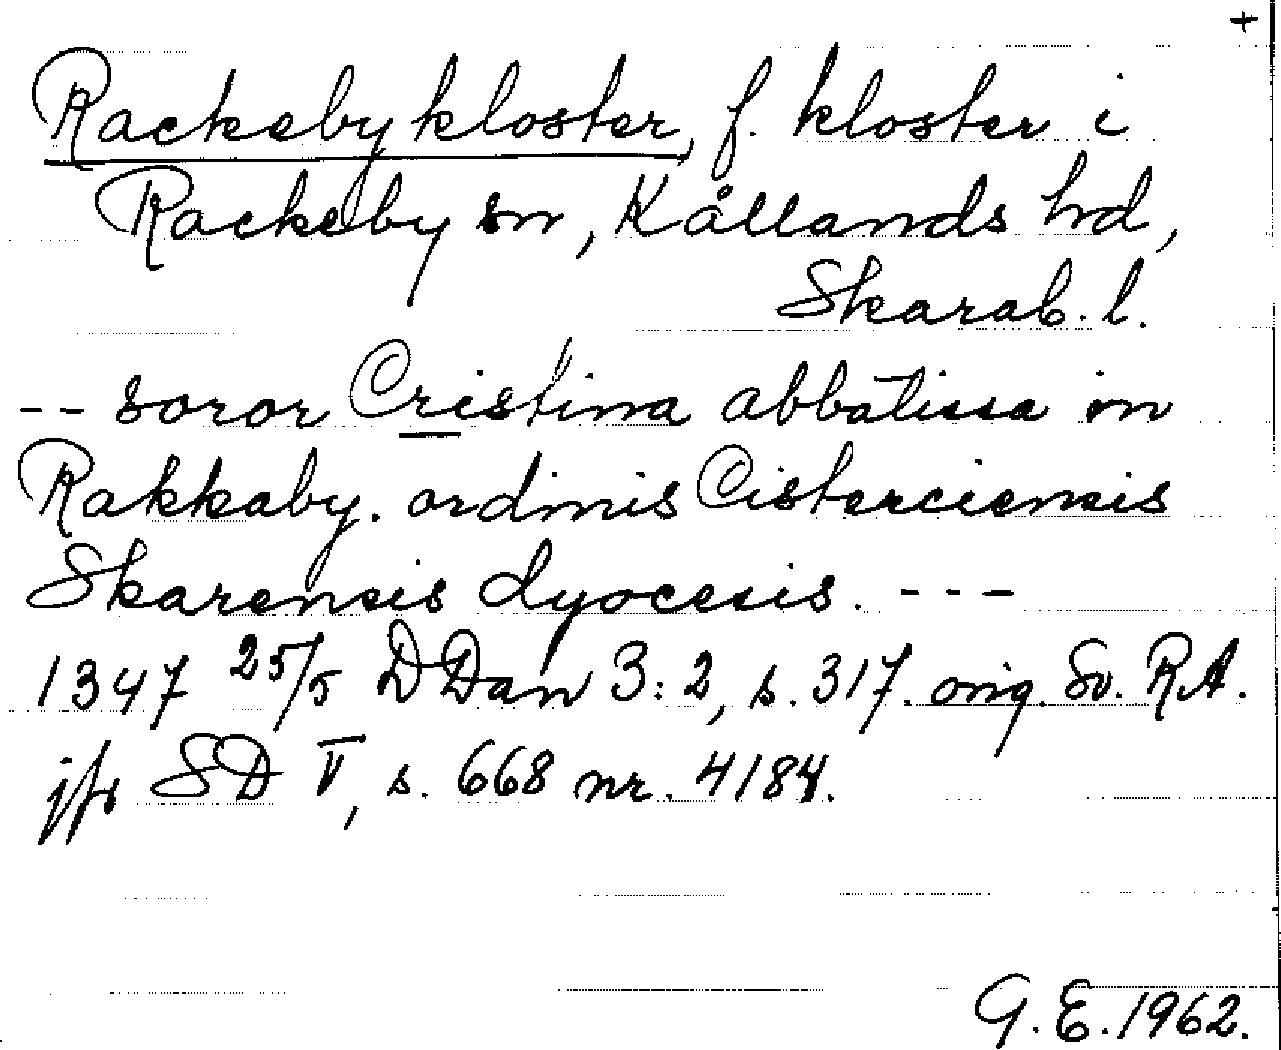 +
Rackeby kloster, f. kloster i
Rackeby sn, Kållands hd,
Skarab. l.
-- soror Cristina abbatissa in
Rakkaby. ordinis Cisterciensis
Skarensis dyocesis. ---
1347 25/5 DDan 3:2, s. 317. orig. Sv. R.A.
jfr SD V, s. 668 nr. 4184.
G. E. 1962.